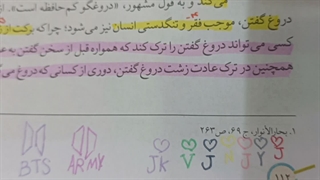 می‌کند و به قول مشهور، «دروغگو کم‌حافظه است».
دروغ گفتن، موجب فقر و تنگدستی انسان نیز می‌شود؛ چرا که برکت از
کسی می‌تواند دروغ گفتن را ترک کند که همواره قبل از سخن گفتن به
همچنین در ترک عادت زشت دروغ گفتن، دوری از کسانی که دروغ می
۱. بحارالأنوار، ج ۶۹، ص ۲۶۳
BTS ARMY JK V J R J Y J
۱۱۲